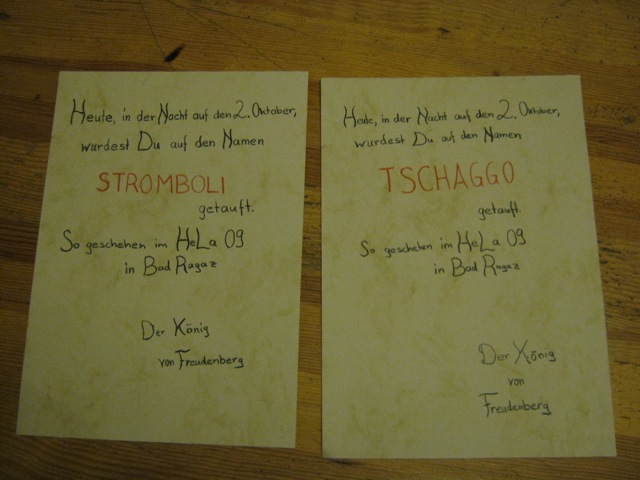 Heute, in der Nacht auf den 2. Oktober,
wurdest Du auf den Namen
STROMBOLI
getauft.
So geschehen im HeLa 09
in Bad Ragaz
Der König
von Freudenberg
Heute, in der Nacht auf den 2. Oktober,
wurdest Du auf den Namen
TSCHAGGO
getauft.
So geschehen im HeLa 09
in Bad Ragaz
Der König
von
Freudenberg